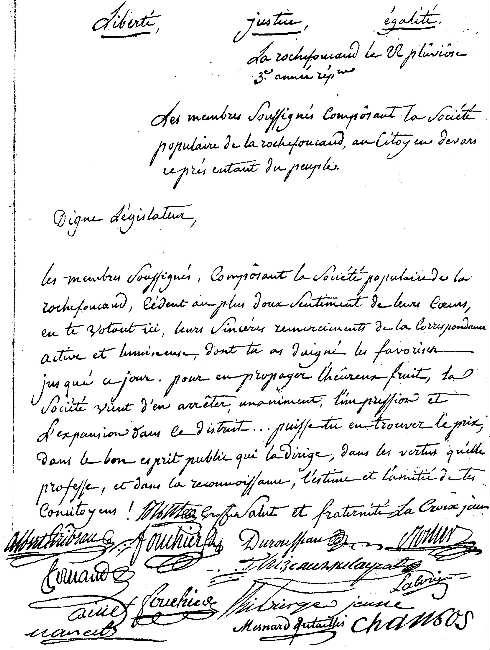 Liberté, justice, égalité.
La rochefoucaud le pluviôse
3e année rép
Les membres Soussignés Compôsant la Société
populaire de la rochefoucaud, au Citoyen devars
représentant du peuple.
Digne Législateur,
les membres Soussignés, Compôsant la Société populaire de la
rochefoucaud, Cèdent au plus doux Sentiment de leurs Cœurs,
en te votant ici, leurs Sincères remerciments de la Correspondance
active et lumineuse, dont tu as daigné les favoriser
jusqu'à ce jour. pour en propager l'heureux fruit, la
Société vient d'en arrêter, unaniment, l'impression et
L'expansion dans ce district... puisse tu en trouver le prix,
dans le bon esprit public qui la Dirige, dans les vertus qu'elle
professe, et dans la reconnoissance, l'estime et l'amitié de tes
Concitoyens ! Salut et fraternité La Croix jeune
fouchier Durousseau
fouchier jeune
Mesnard Chansos